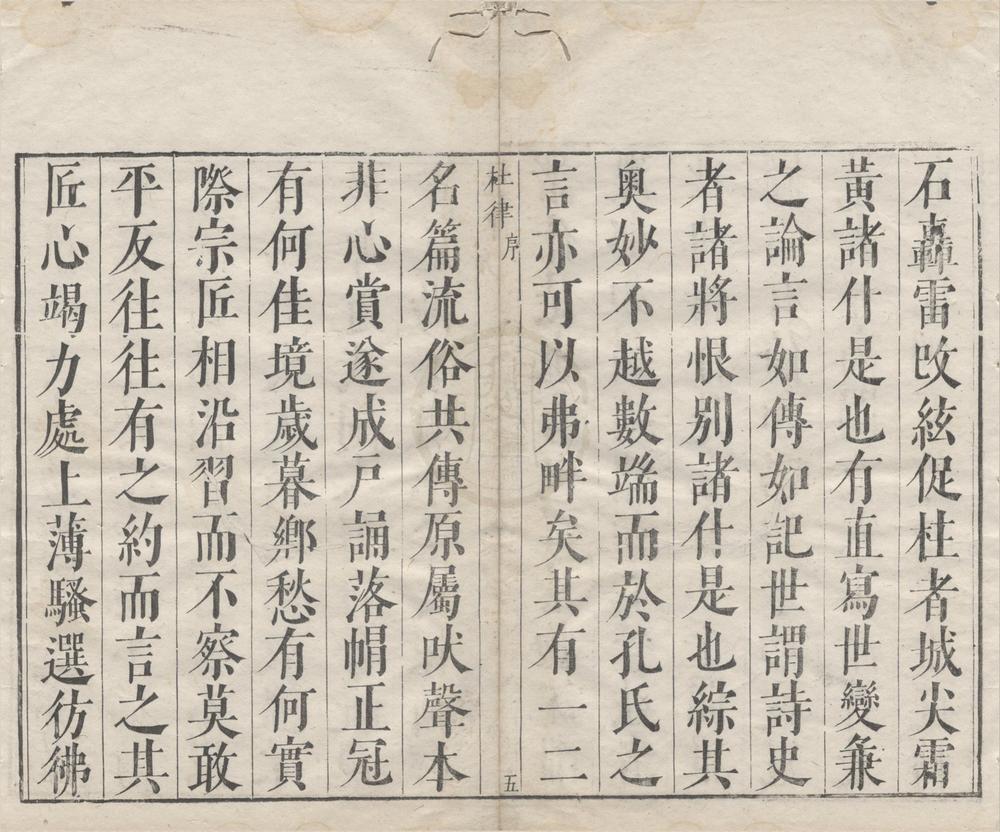 石轟雷改絃促柱者城尖霜
黃諸什是也有直寫世變兼
之論言如傳如記世謂詩史
者諸將恨別諸什是也綜其
奧妙不越數端而於孔氏之
言亦可以弗畔矣其有一二
杜律 序 五
名篇流俗共傳原屬吠聲本
非心賞遂成戶誦落帽正冠
有何佳境歲暮鄉愁有何實
際宗匠相沿習而不察莫敢
平反往往有之約而言之其
匠心竭力處上薄騷選彷彿